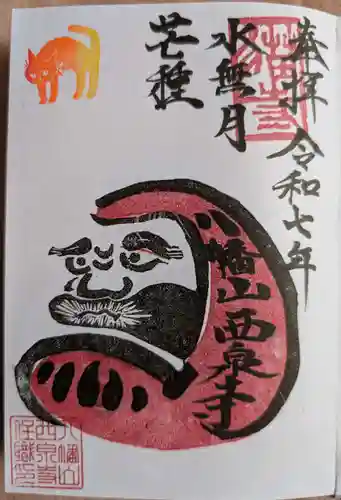 奉拝 令和七年
水無月
芒種
八幡山西泉寺
八幡山
西泉寺
住職印